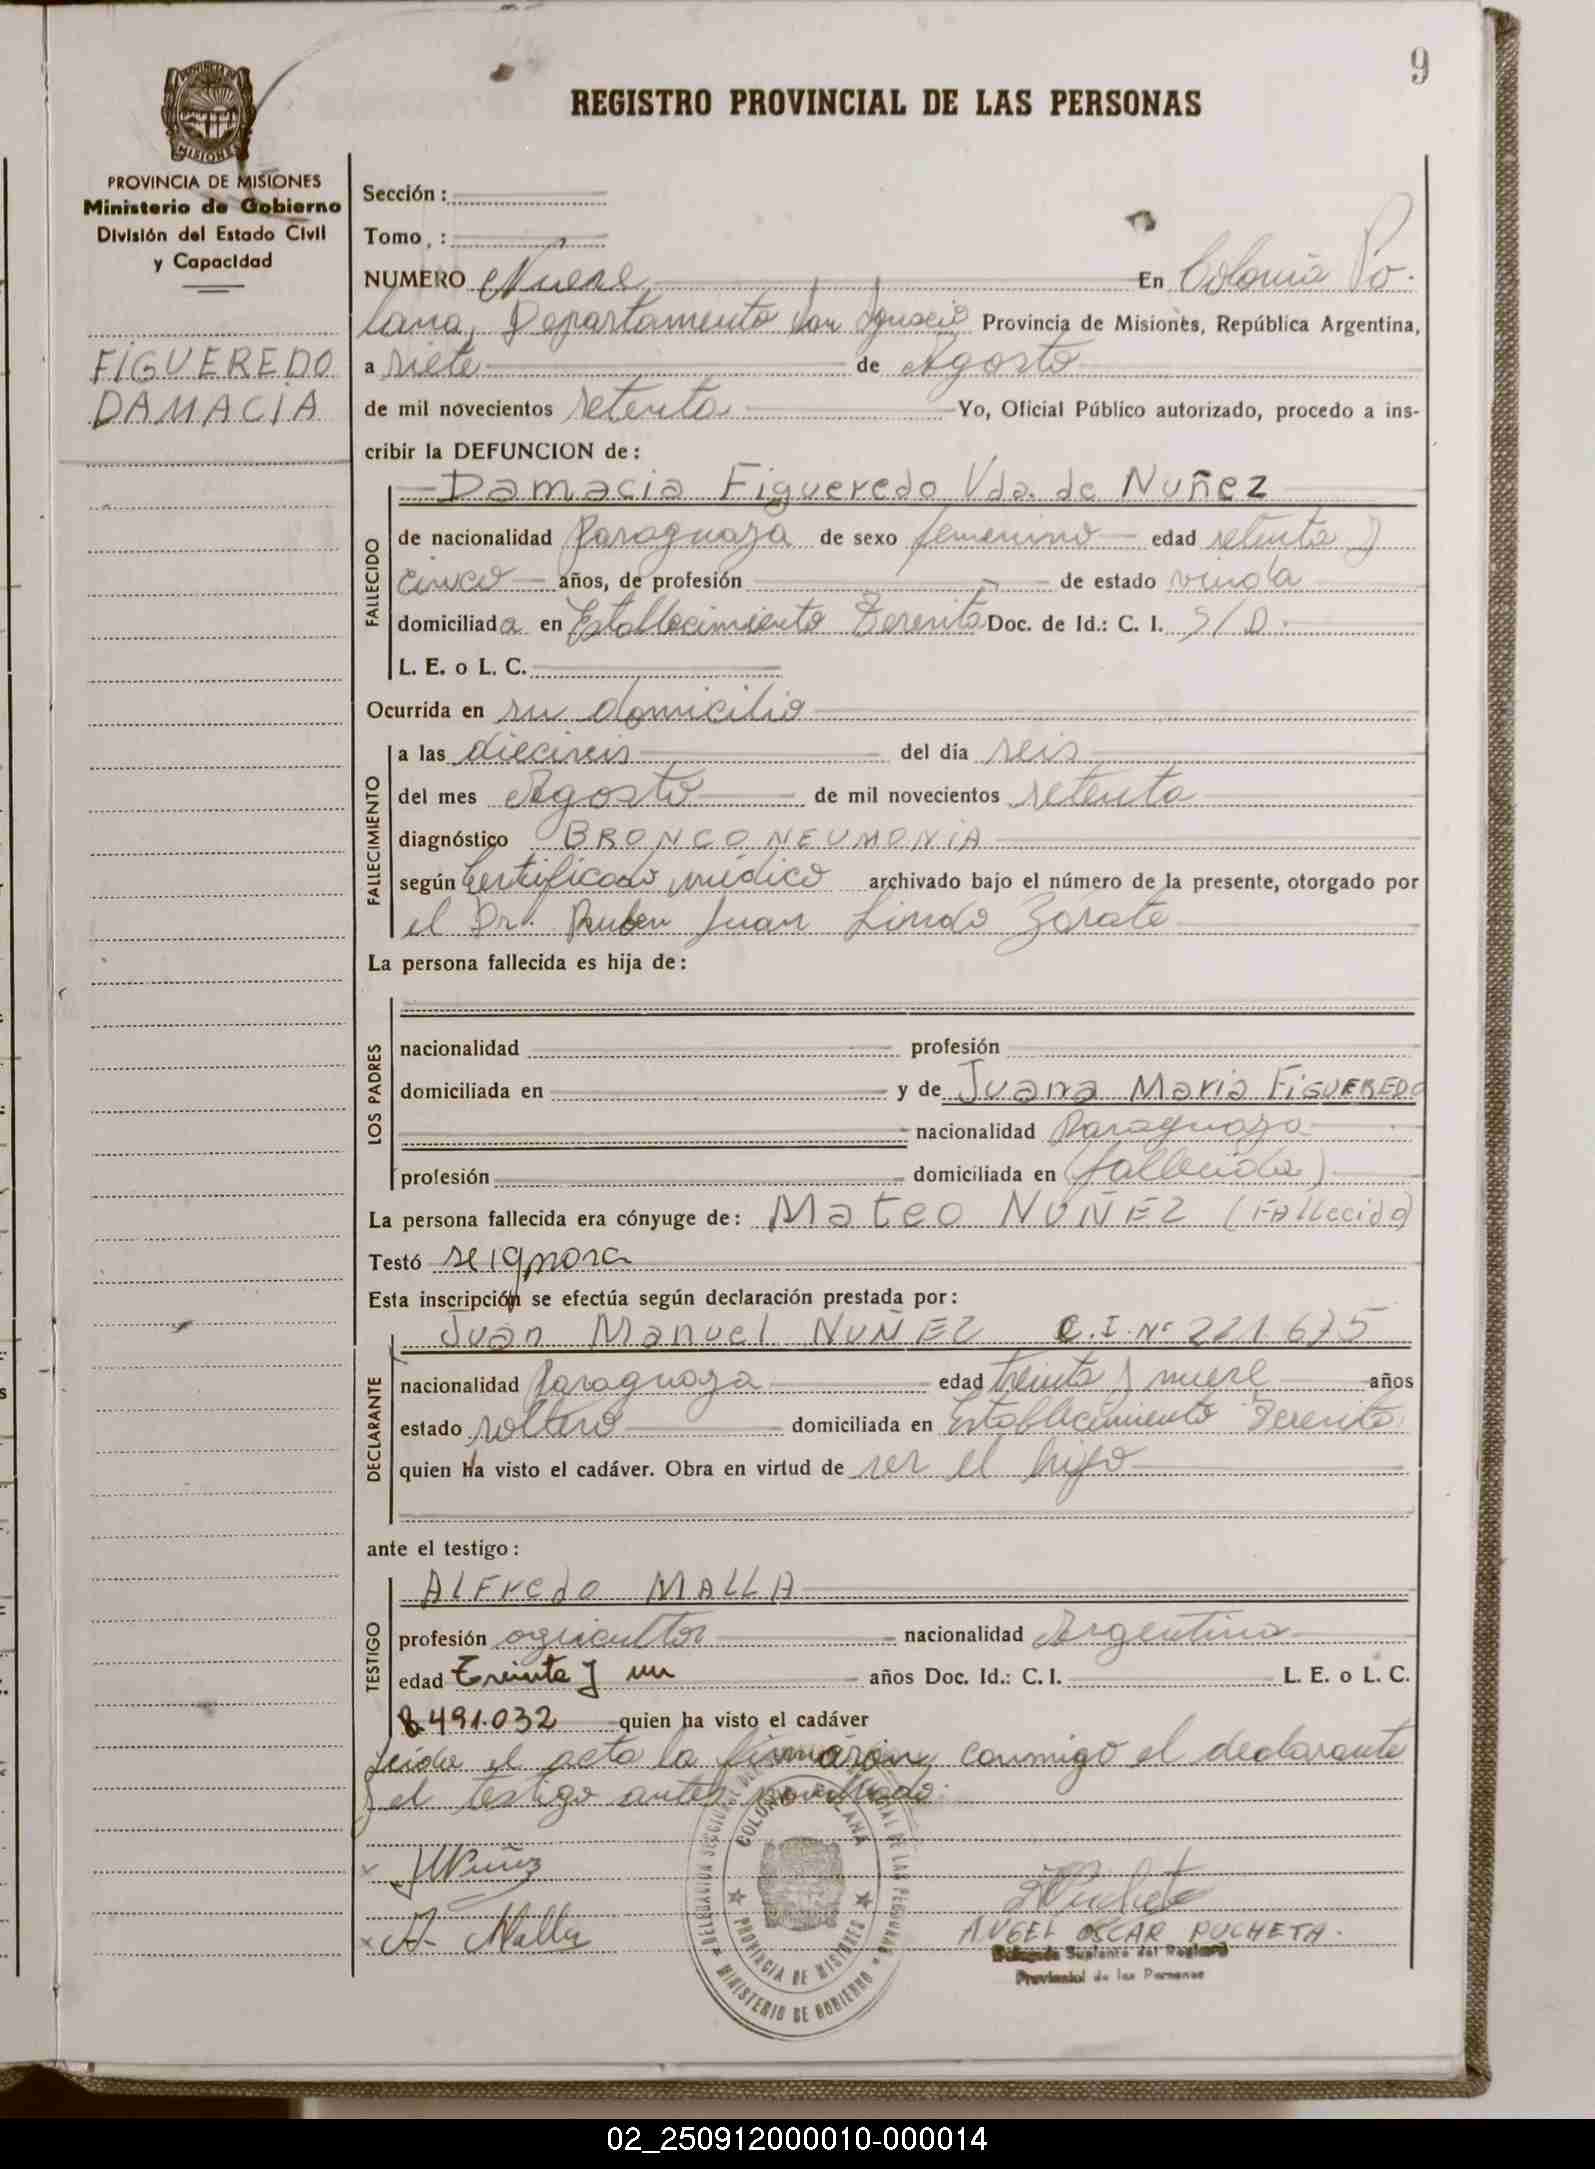 9
REGISTRO PROVINCIAL DE LAS PERSONAS
MISIONES
PROVINCIA DE MISIONES
Ministerio de Gobierno
División del Estado Civil
y Capacidad
FIGUEREDO
DAMACIA
Sección :
Tomo :
NUMERO Nueve En Colonia Po-
lana, Departamento San Ignacio Provincia de Misiones, República Argentina,
a siete de Agosto
de mil novecientos setenta Yo, Oficial Público autorizado, procedo a ins-
cribir la DEFUNCION de :
FALLECIDO
Damacia Figueredo Vda. de Nuñez
de nacionalidad Paraguaya de sexo femenino edad setenta y
cinco años, de profesión de estado viuda
domiciliada en Establecimiento Doc. de Id.: C. I. S/D.
L. E. o L. C.
Ocurrida en su domicilio
FALLECIMIENTO
a las dieciseis del día seis
del mes Agosto de mil novecientos setenta
diagnóstico BRONCONEUMONIA
según Certificado médico archivado bajo el número de la presente, otorgado por
el Dr. Ruben Juan Lindo Zarate
La persona fallecida es hija de :
LOS PADRES
nacionalidad profesión
domiciliada en y de Juana Maria FIGUEREDO
nacionalidad Paraguaya
profesión domiciliada en (fallecida)
La persona fallecida era cónyuge de : Mateo NUÑEZ (Fallecido)
Testó se ignora
Esta inscripción se efectúa según declaración prestada por :
DECLARANTE
Juan Manuel NUÑEZ C.I. Nº 221.675
nacionalidad Paraguaya edad treinta y nueve años
estado soltero domiciliada en Establecimiento
quien ha visto el cadáver. Obra en virtud de ser el hijo
ante el testigo :
TESTIGO
Alfredo MALLA
profesión agricultor nacionalidad Argentina
edad Treinta y un años Doc. Id.: C. I. L. E. o L. C.
8.491.032 quien ha visto el cadáver
Leída el acta la firmaron conmigo el declarante
y el testigo antes nombrado.
COLONIA POLANA
PROVINCIA DE MISIONES
MINISTERIO DE GOBIERNO
x JNuñez
x A. Malla
ANGEL OSCAR PUCHETA.
Delegado Suplente del Registro
Provincial de las Personas
02_250912000010-000014